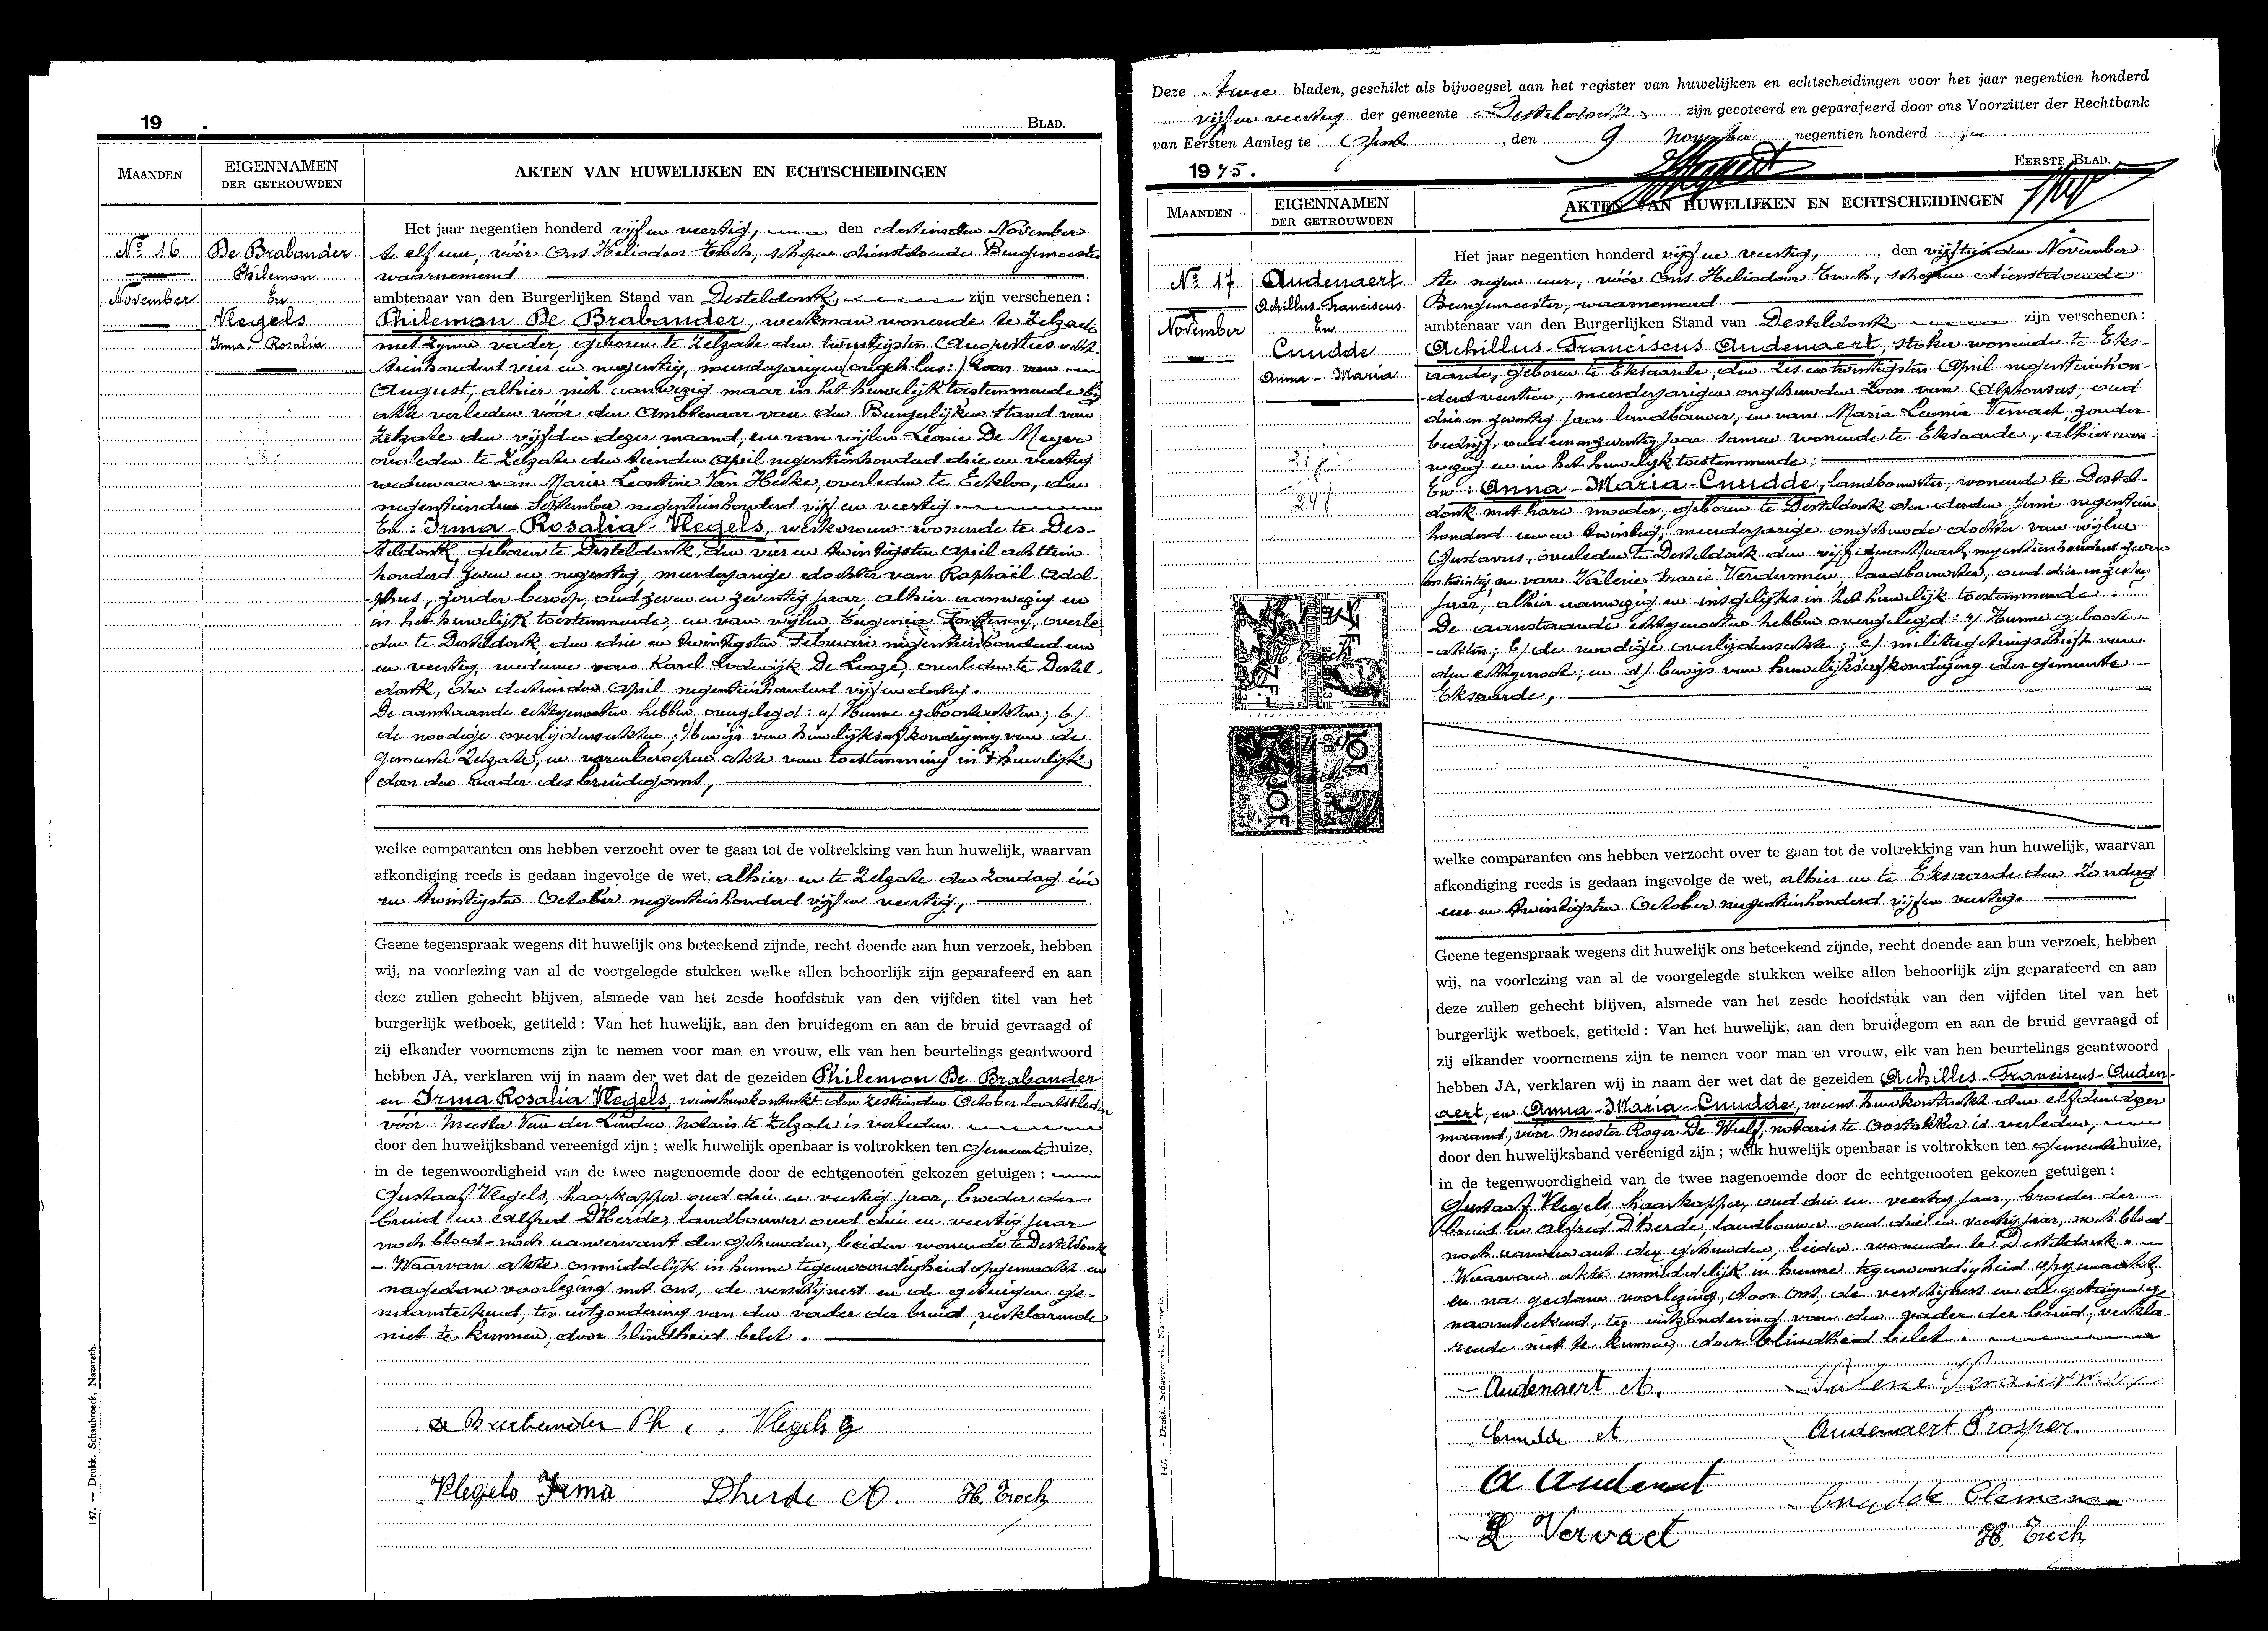 19 .
BLAD.
MAANDEN
EIGENNAMEN
DER GETROUWDEN
AKTEN VAN HUWELIJKEN EN ECHTSCHEIDINGEN
Nº 16
November
De Brabander
Philemon
En
Vlegels
Irma - Rosalia
Het jaar negentien honderd vijf en veertig, den dertienden November
te elf ure, vóór Ons Heliodoor Troch, schepen dienstdoende Burgemeester
waarnemend
ambtenaar van den Burgerlijken Stand van Desteldonk, zijn verschenen :
Philemon De Brabander, werkman wonende te Zelzate
met zijnen vader, geboren te Zelzate den twintigsten Augustus acht-
tienhonderd vier en negentig, meerderjarigen zoon van
August, alhier niet aanwezig maar in het huwelijk toestemmende bij
akte verleden vóór den Ambtenaar van den Burgerlijken Stand van
Zelzate den vijfden dezer maand, en van wijlen Leonie De Meyer
overleden te Zelzate den tienden April negentienhonderd drie en veertig
weduwaar van Marie Leontine Van Hecke, overleden te Eekloo, den
negentienden September negentienhonderd vijf en veertig
En : Irma - Rosalia - Vlegels, werkvrouw wonende te Des-
teldonk, geboren te Desteldonk, den vier en twintigsten April achttien
honderd zeven en negentig, meerderjarige dochter van Raphaël Adol-
phus, zonder beroep, oud zeven en zeventig jaar, alhier aanwezig en
in het huwelijk toestemmende, en van wijlen Eugenia overle-
den te Desteldonk, den drie en twintigsten Februari negentienhonderd een
en veertig, weduwe van Karel Lodewijk De Looze, overleden te Destel-
donk, den dertienden April negentienhonderd vijf en dertig.
De aanstaande echtgenooten hebben overgelegd : a/ Hunne geboorteakten ; b/
de noodige overlijdensakten ; c/ bewijs van huwelijksafkondiging van de
gemeente Zelzate, en vorenberoepen akte van toestemming in 't huwelijk
door den vader des bruidegoms,
welke comparanten ons hebben verzocht over te gaan tot de voltrekking van hun huwelijk, waarvan
afkondiging reeds is gedaan ingevolge de wet, alhier en te Zelzate den Zondag één
en twintigsten October negentienhonderd vijf en veertig,
Geene tegenspraak wegens dit huwelijk ons beteekend zijnde, recht doende aan hun verzoek, hebben
wij, na voorlezing van al de voorgelegde stukken welke allen behoorlijk zijn geparafeerd en aan
deze zullen gehecht blijven, alsmede van het zesde hoofdstuk van den vijfden titel van het
burgerlijk wetboek, getiteld : Van het huwelijk, aan den bruidegom en aan de bruid gevraagd of
zij elkander voornemens zijn te nemen voor man en vrouw, elk van hen beurtelings geantwoord
hebben JA, verklaren wij in naam der wet dat de gezeiden Philemon De Brabander
en Irma Rosalia Vlegels, wiens huwkontrakt den zestienden October laatstleden
vóór Meester Van der Linden notaris te Zelzate is verleden
door den huwelijksband vereenigd zijn ; welk huwelijk openbaar is voltrokken ten gemeentehuize,
in de tegenwoordigheid van de twee nagenoemde door de echtgenooten gekozen getuigen :
Gustaaf Vlegels, haarkapper oud drie en veertig jaar, broeder der
bruid en Alfred D'Herde, landbouwer oud drie en veertig jaar
noch bloed- noch aanverwant der gehuwden, beiden wonende te Desteldonk
- Waarvan akte onmiddelijk in hunne tegenwoordigheid opgemaakt en
na gedane voorlezing met ons, de verschijners en de getuigen ge-
naamteekend, ter uitzondering van den vader der bruid, verklarende
niet te kunnen, door blindheid belet.
De Brabander Ph.
Vlegels G
Vlegels Irma
Dherde A.
H. Troch
147. — Drukk. Schaubroeck, Nazareth.
Deze twee bladen, geschikt als bijvoegsel aan het register van huwelijken en echtscheidingen voor het jaar negentien honderd
vijf en veertig der gemeente Desteldonk zijn gecoteerd en geparafeerd door ons Voorzitter der Rechtbank
van Eersten Aanleg te Gent, den 9 November negentien honderd
1945.
EERSTE BLAD.
MAANDEN
EIGENNAMEN
DER GETROUWDEN
AKTEN VAN HUWELIJKEN EN ECHTSCHEIDINGEN
Nº 17
November
Audenaert
Achillus-Franciscus
En
Cnudde
Anna - Maria
Het jaar negentien honderd vijf en veertig, den vijftienden November
te negen uur, vóór Ons Heliodoor Troch, schepen dienstdoende
Burgemeester, waarnemend
ambtenaar van den Burgerlijken Stand van Desteldonk zijn verschenen :
Achillus - Franciscus Audenaert, stoker wonende te Eks-
aarde, geboren te Eksaarde, den zes en twintigsten April negentienhon-
derd veertien, meerderjarigen ongehuwden zoon van Alphonsus, oud
drie en zeventig jaar landbouwer, en van Maria Leonie Vervaet, zonder
bedrijf, oud een en zeventig jaar samen wonende te Eksaarde, alhier aan-
wezig en in het huwelijk toestemmende ;
En : Anna - Maria - Cnudde, landbouwster, wonende te Destel-
donk met hare moeder, geboren te Desteldonk den derden Juni negentien
honderd een en twintig, meerderjarige ongehuwde dochter van wijlen
Gustavus, overleden te Desteldonk den vijfden Maart negentienhonderd zeven
en twintig, en van Valerie Marie Verdurmen, landbouwster, oud
jaar, alhier aanwezig en insgelijks in het huwelijk toestemmende.
De aanstaande echtgenooten hebben overgelegd : a/ Hunne geboorte-
-akten ; b/ de noodige overlijdensakte ; c/ militiegetuigschrift van
den echtgenoot ; en d/ bewijs van huwelijksafkondiging der gemeente
Eksaarde,
10F
welke comparanten ons hebben verzocht over te gaan tot de voltrekking van hun huwelijk, waarvan
afkondiging reeds is gedaan ingevolge de wet, alhier en te Eksaarde den Zondag
een en twintigsten October negentienhonderd vijf en veertig.
Geene tegenspraak wegens dit huwelijk ons beteekend zijnde, recht doende aan hun verzoek, hebben
wij, na voorlezing van al de voorgelegde stukken welke allen behoorlijk zijn geparafeerd en aan
deze zullen gehecht blijven, alsmede van het zesde hoofdstuk van den vijfden titel van het
burgerlijk wetboek, getiteld : Van het huwelijk, aan den bruidegom en aan de bruid gevraagd of
zij elkander voornemens zijn te nemen voor man en vrouw, elk van hen beurtelings geantwoord
hebben JA, verklaren wij in naam der wet dat de gezeiden Achilles - Franciscus - Auden-
aert, en Anna - Maria - Cnudde, wiens huwkontrakt den elfden dezer
maand, vóór Meester Roger De Wulf, notaris te Oostakker is verleden,
door den huwelijksband vereenigd zijn ; welk huwelijk openbaar is voltrokken ten gemeentehuize,
in de tegenwoordigheid van de twee nagenoemde door de echtgenooten gekozen getuigen :
Gustaaf Vlegels haarkapper, oud drie en veertig jaar, broeder der
bruid en Alfred D'herde, landbouwer oud drie en veertig jaar, noch bloed-
noch aanverwant der gehuwden, beiden wonende te Desteldonk.
Waarvan akte onmiddelijk in hunne tegenwoordigheid opgemaakt
en na gedane voorlezing, door ons, de verschijners en de getuigen ge
naamteekend, ter uitzondering van den vader der bruid, verkla-
rende niet te kunnen, door blindheid belet.
Audenaert A.
Cnudde A
Audenaert Prosper.
A Audenaert
Cnudde Clemens
L Vervaet
H. Troch
147. — Drukk. Schaubroeck, Nazareth.